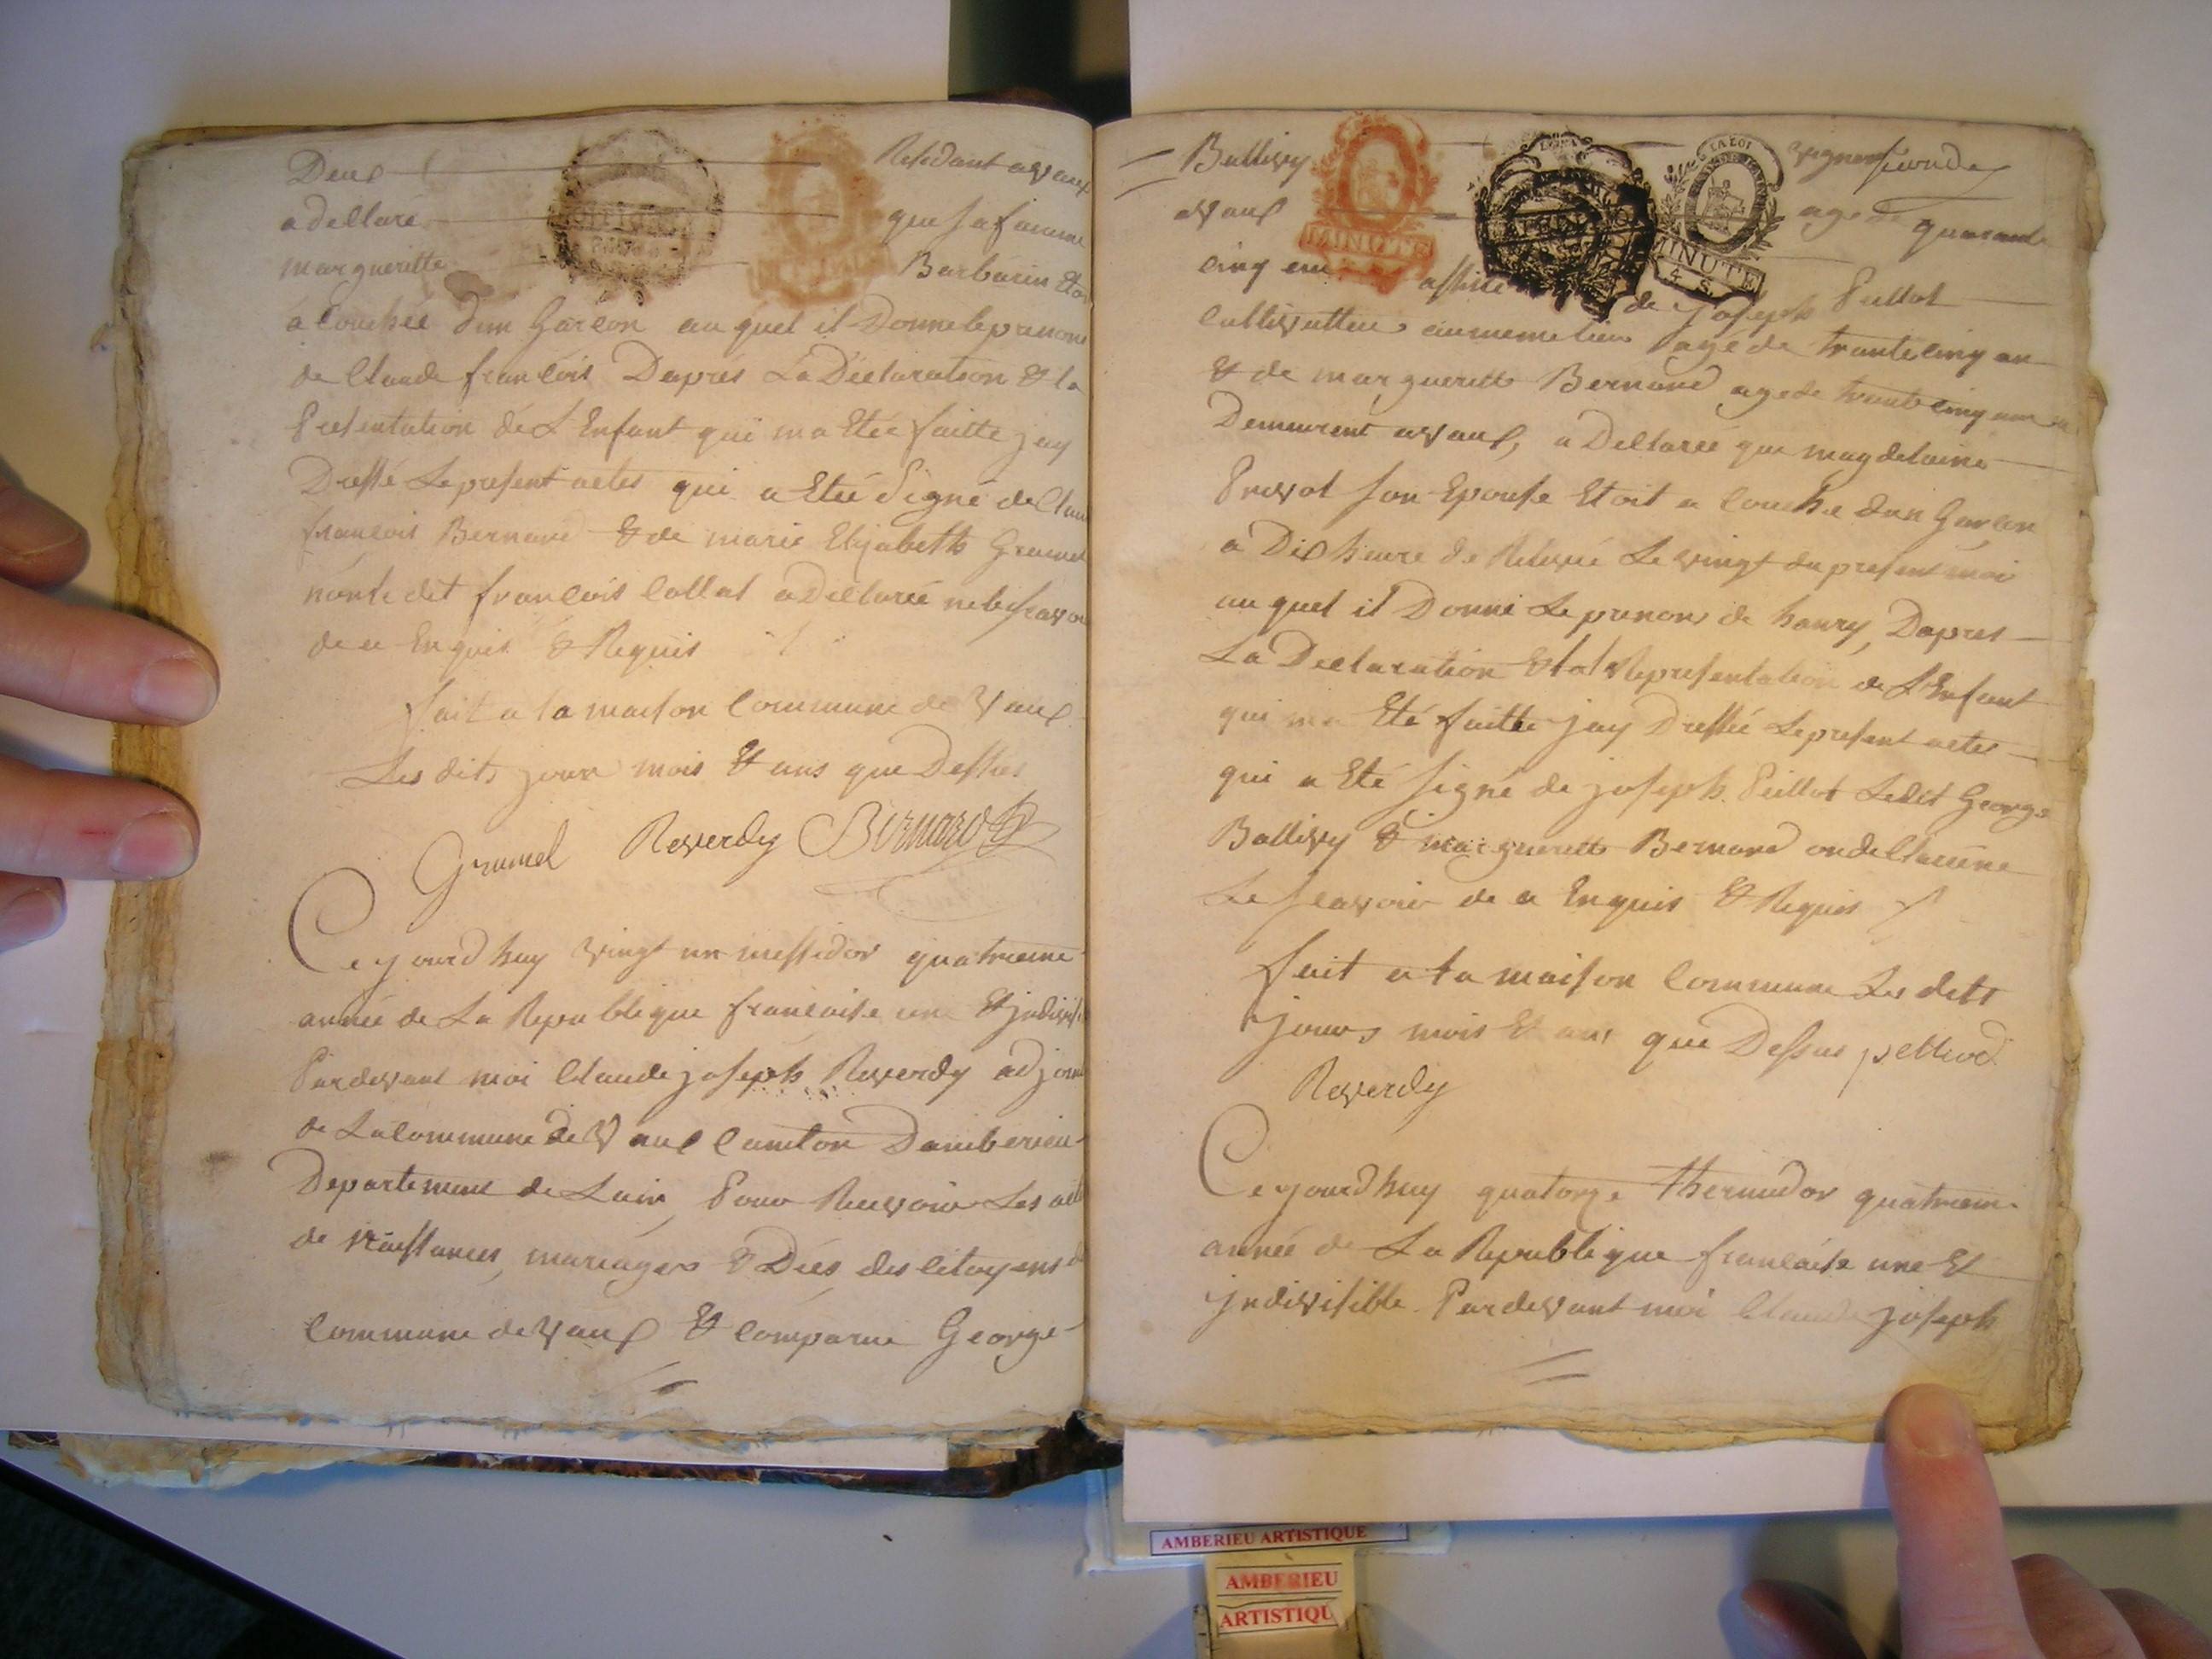 Deux Residant a Vaux
a dellaré que sa famme
margueritte Barbarin Etoi
a Couchée dun Garcon au quel il Donne le prenom
de Claude francois Dapres La Déclaration & la
Presentation de L Enfant qui ma Etée faitte jay
Dressé Le present actes qui a Etée Signé de Clau
francois Bernard & de marie Elizabeth Grumel
non le dit francois Collat a Déclareé ne le scavoi
de ce Enquis & Requis
fait a la maison Commune de Vaux
Les dits jour mois & ans que Dessus
Grumel Reverdy Bernard
Ce yourdhuy vingt un messidor quatrieme
année de La Republique francaise une Et jndivisi
Pardevant moi Claude joseph Reverdy adjoin
de La Commune de Vaux Canton Damberieu
Departement de Lain, Pour Recevoir Les act
de naissances, mariages & Déés des Citoyens d
Commune de Vaux & Comparue George
Ballivy vigneron
a Vaux age de quarante
cinq an assisté de joseph Peillot
Cultivatteur au meme lieu agé de trante cinq an
& de margueritte Bernard age de trante cinq an
Demeurent a Vaux, a Dellareé que magdelaine
Prevot son Epouse Etoit a Couche dun Garcon
a Dix heure de Relevée Le vingt du present moi
au quel il Donne Le prenom de hanry, Dapres
La Declaration & la Representation de L'Enfant
qui ma Eté faitte jay Dressée Le present actes
qui a Eté signé de joseph Peillot Ledit George
Ballivy & margueritte Bernard on dellarée ne
Le scavoir de ce Enquis & Requis
fait a la maison Commune Les dits
jours mois & ans que Dessus
Reverdy
Ce yourdhuy quatorze thermidor quatriem
année de La Republique francaise une Et
jndivisible Pardevant moi Claude joseph
LA LOI
MINUTE
MINUTE
4 S.
AMBERIEU ARTISTIQUE
AMBERIEU
ARTISTIQU